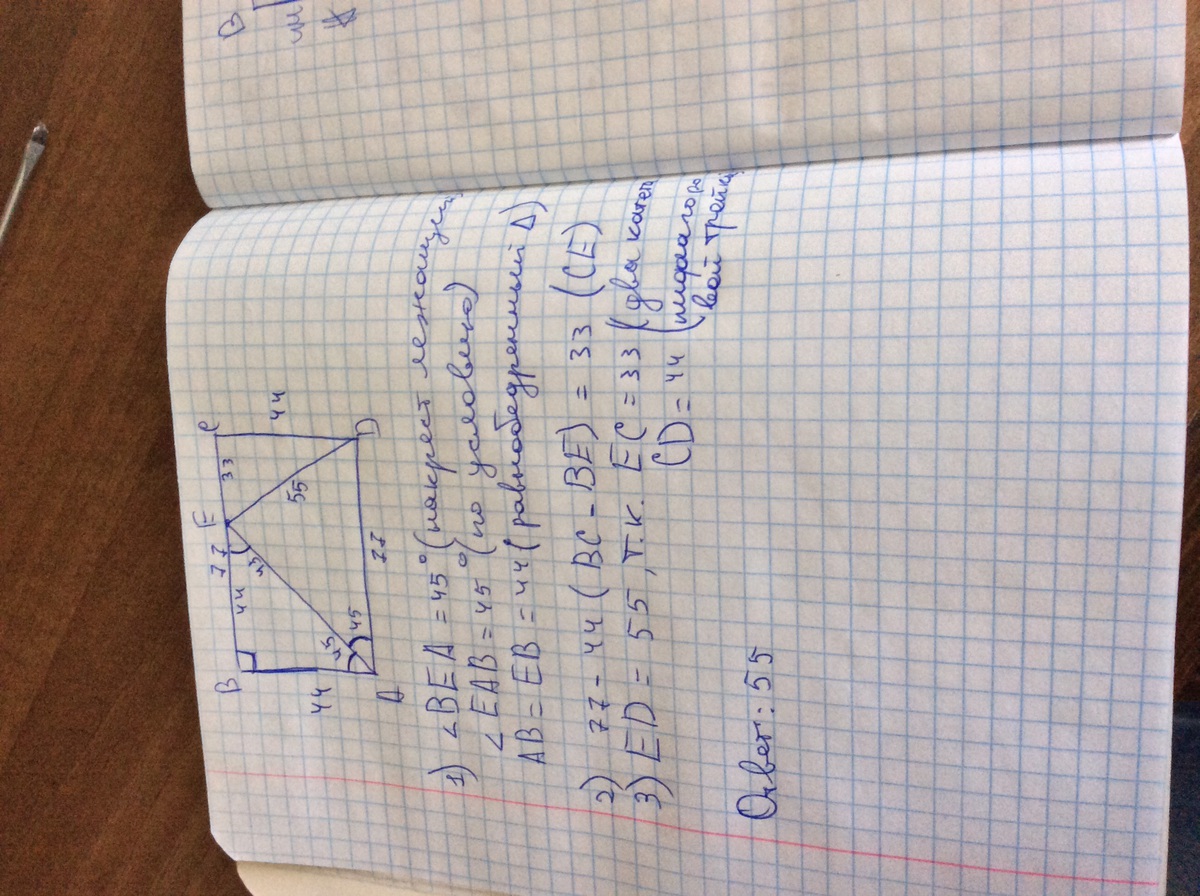 B 44 77 E 33 C
45
44 45 45 55 44
A 77 D
1) ∠BEA = 45° (накрест лежащие)
∠EAB = 45° (по условию)
AB = EB = 44 (равнобедренный Δ)
2) 77 - 44 (BC - BE) = 33 (CE)
3) ED = 55, т.к. EC = 33 (два катета
CD = 44 (пифагоро
вой тройки
Ответ: 55
В